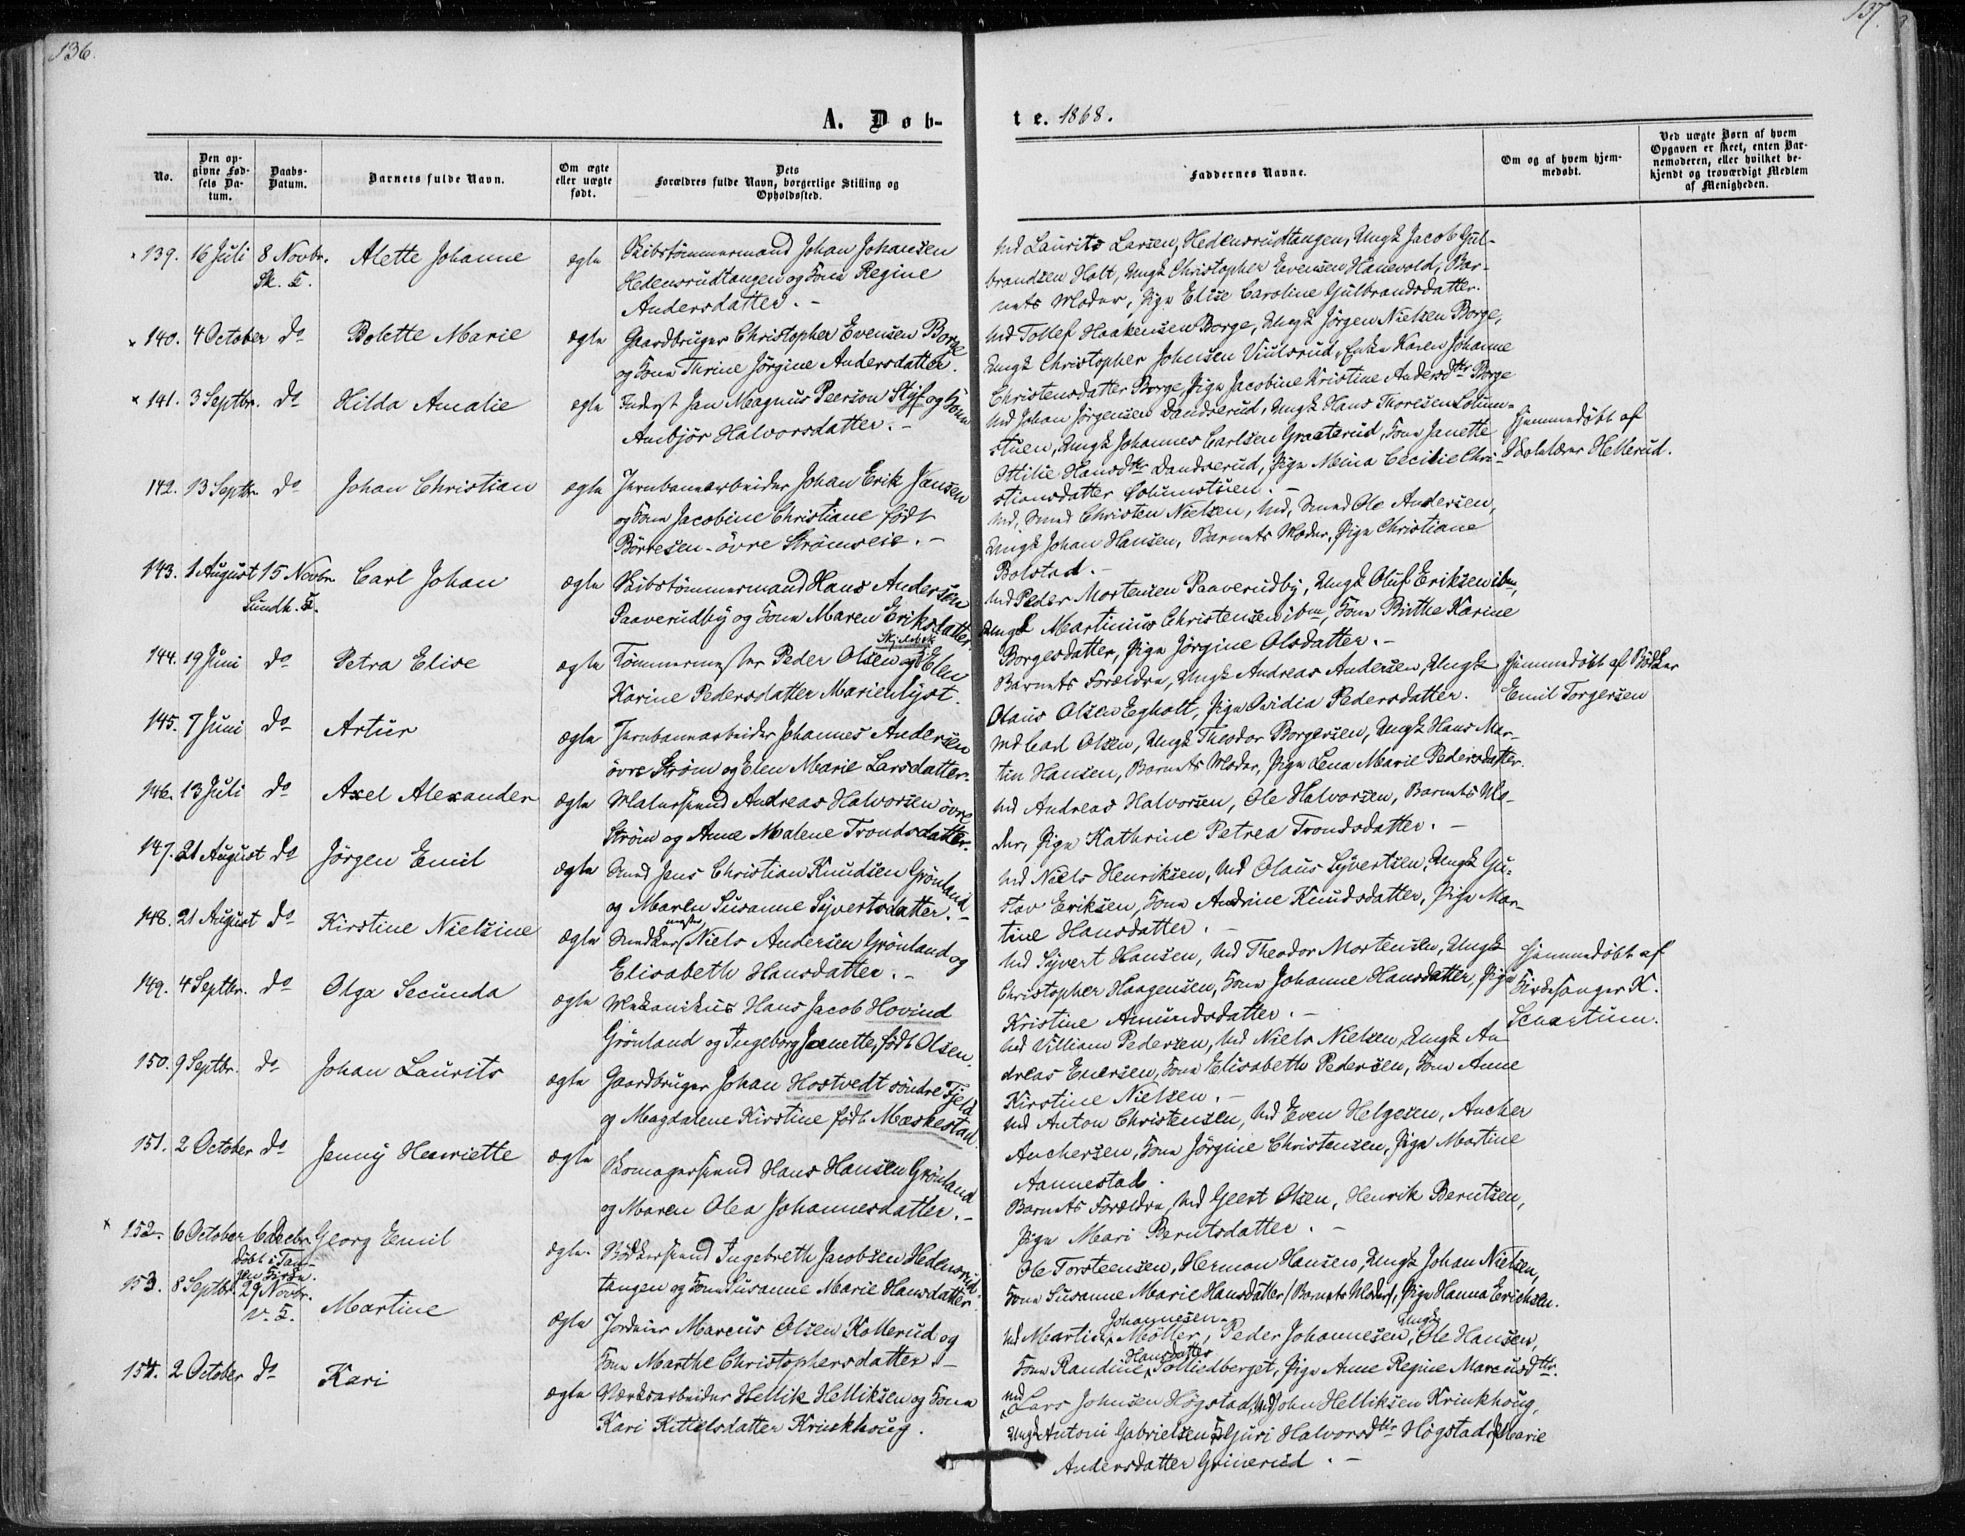 136.
137.
A. Døb-
te. 1868.
No.
Den op-
givne Fød-
sels Da-
tum.
Daabs-
Datum.
Barnets fulde Navn.
Om ægte
eller uægte
født.
Dets
Forældres fulde Navn, borgerlige Stilling og
Opholdssted.
Faddernes Navne.
Om og af hvem hjem-
medøbt.
Ved uægte Børn af hvem
Opgaven er skeet, enten Bar-
nemoderen, eller hvilket be-
kjendt og troværdigt Medlem
af Menigheden.
× 139. 16 Juli 8 Novbr. Alette Johanne ægte Skibstömmermand Johan Johansen
Sk. K.
Hedensrudtangen og Kone Regine
Andersdatter. –
Ud Laurits Larsen, Hedensrudtangen, Ungk Jacob Gul-
brandsen Holt, Ungk Christopher Evensen Hanevold, Bar-
nets Moder, Pige Elise Caroline Gulbrandsdatter.
× 140. 4 October do Bolette Marie ægte Gaardbruger Christopher Evensen Borge
og Kone Thrine Jörgine Andersdatter.
Ud Tollef Haakensen Borge, Ungk Jörgen Nielsen Borge,
Ungk Christopher Johnsen Viulsrud, Enke Karen Johanne
Christensdatter Borge, Pige Jacobine Kristine Andersdtr Borge
× 141. 3 Septbr. do Hilda Amalie ægte Inderst Jan Magnus Peerson Stÿf og Kone
Anbjör Halvorsdatter. –
Ud Johan Jörgensen Dandserud, Ungk Hans Thoresen Lolum-
stuen, Ungk Johannes Carlsen Graaterud, Kone Janette
Ottilie Hansdtr Dandserud, Pige Mina Cecilie Chri-
stiansdatter Lolumstuen. –
Hjemmedøbt af
Skolelærer Hellerud.
142. 13 Septbr. do Johan Christian ægte Jernbanearbeider Johan Erik Jansen
og Kone Jacobine Christiane født
Börresen - övre Strömseie. –
Ud, Smed Christen Nielsen, Ud, Smed Ole Andersen,
Ungk Johan Hansen, Barnets Moder, Pige Christiane
Bolstad. –
143. 1 August 15 Novbr. Carl Johan ægte Skibstömmermand Hans Andersen
Sundh. K.
Paaverudby og Kone Maren Eriksdatter.
Ud Peder Mortensen Paaverudby, Ungk Oluf Eriksen ibm,
Ungk Martinius Christensen ibm, Kone Birthe Karine
Borgesdatter, Pige Jörgine Olsdatter. –
144. 19 Juni do Petra Elise ægte Tömmermester Peder Olsen Skjelbek og Elen
Karine Pedersdatter Marienlyst.
Barnets Forældre, Ungk Andreas Andersen, Ungk
Olaus Olsen Egholt, Pige Ovidia Pedersdatter.
Hjemmedøbt af Bödker
Emil Torgersen
145. 7 Juni do Artur ægte Jernbanearbeider Johannes Andersen
övre Ström og Elen Marie Larsdatter.
Ud Carl Olsen, Ungk Theodor Borgersen, Ungk Hans Mar-
tin Hansen, Barnets Moder, Pige Lena Marie Pedersdatter.
146. 13 Juli do Axel Alexander ægte Malersvend Andreas Halvorsen övre
Ström og Anne Malene Trondsdatter.
Ud Andreas Halvorsen, Ole Halvorsen, Barnets Mo-
der, Pige Kathrine Petrea Trondsdatter. –
147. 21 August do Jörgen Emil ægte Smed Jens Christian Knudsen Grönland
og Maren Susanne Syvertsdatter. –
Ud Niels Henriksen, Ud Olaus Syvertsen, Ungk Gu-
stav Eriksen, Kone Andrine Knudsdatter, Pige Mar-
tine Hansdatter. –
148. 21 August do Kirstine Nielsine ægte Snedkermester Niels Andersen Grönland og
Elisabeth Hansdatter. –
Ud Syvert Hansen, Ud Theodor Mortensen, Ungk
Christopher Haagensen, Kone Johanne Hansdatter, Pige
Kristine Amundsdatter. –
Hjemmedøbt af
Kirkesanger K.
Schartum.
149. 4 Septbr. do Olga Secunda ægte Mekanikus Hans Jacob Hovind
Grönland og Ingeborg Jeanette, født Olsen.
Ud Villiam Pedersen, Ud Niels Nielsen, Ungk An-
dreas Enersen, Kone Elisabeth Pedersen, Kone Anne
Kirstine Nielsen. –
150. 9 Septbr. do Johan Laurits ægte Gaardbruger Johan Hostvedt söndre Fjeld
og Magdalene Kirstine født Mæskestad.
Ud Anton Christensen, Ud Even Helgesen, Ancher
Anchersen, Kone Jörgine Christensen, Pige Martine
Aannestad.
151. 2 October do Jenny Henriette ægte Skomagersvend Hans Hansen Grönland
og Maren Olea Johannesdatter. –
Barnets Forældre, Ud Geert Olsen, Henrik Berntsen,
Pige Mari Berntsdatter. –
× 152. 6 October 6 Decbr. Georg Emil ægte Bödkersvend Ingebreth Jacobsen Hedensrud-
döbt i Tan-
gen Kirke.
tangen og Kone Susanne Marie Hansdatter.
Ole Torsteensen, Herman Hansen, Ungk Johan Nielsen,
Kone Susanne Marie Hansdatter (Barnets Moder), Pige Hanna Erichsen.
153. 8 Septbr. 29 Novbr. Martine ægte Jordeier Marcus Olsen Kollerud og
v. K.
Kone Marthe Christophersdatter. –
Ud Martin Johannesen Möller, Peder Johannesen, Ungk Ole Hansen,
Kone Randine Hansdatter Solliedberget, Pige Anne Regine Marcusdtr.
154. 2 October do Kari ægte Værksarbeider Hellik Helliksen og Kone
Kari Kittelsdatter Krinkhoug.
Ud Lars Johnsen Högstad, Ud John Helliksen Krinkhoug,
Ungk Antoni Gabrielsen, K Guri Halvorsdtr Högstad, P Marie
Andersdatter Grinerud. –